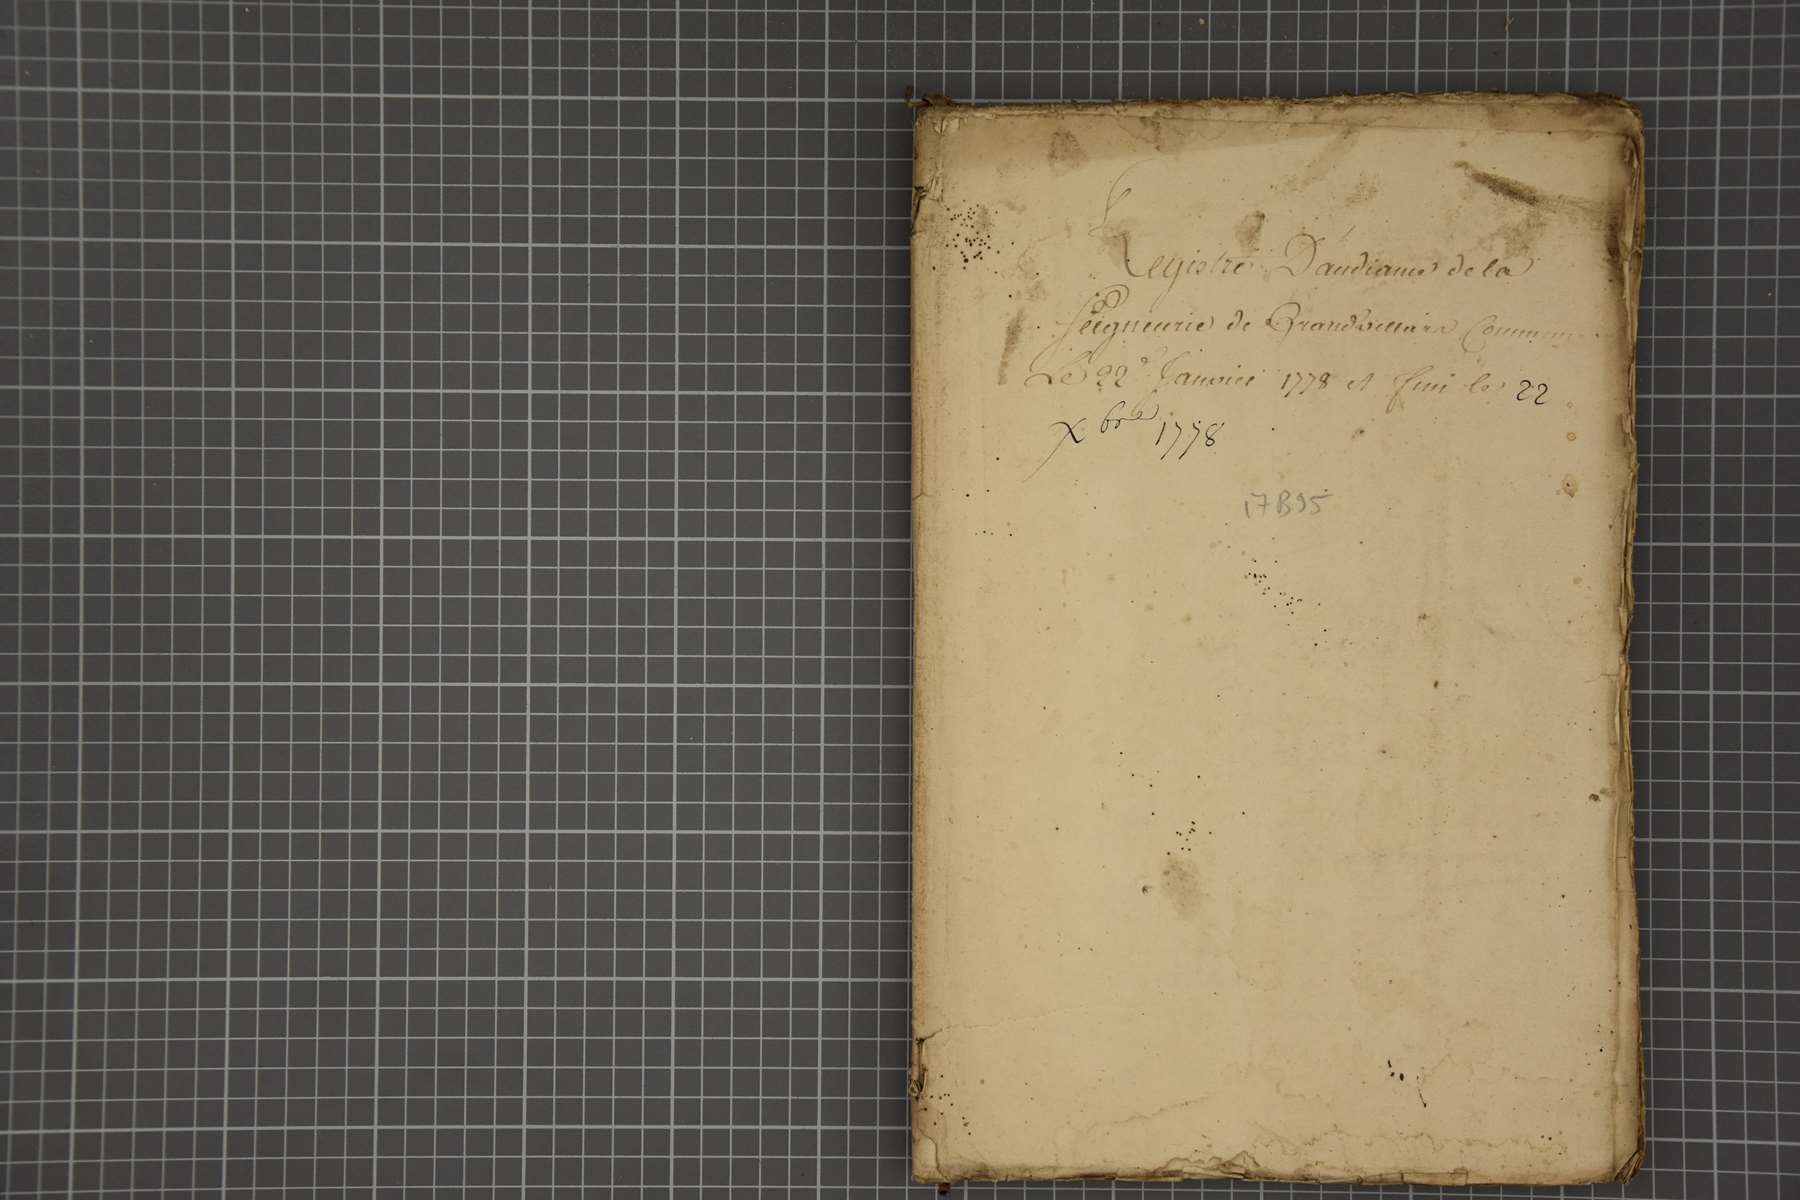 Registre D'audiance de la
Seigneurie de Grandvillars Commen
Le 22e Janvier 1778 et fini le 22
Xbre 1778
17B95